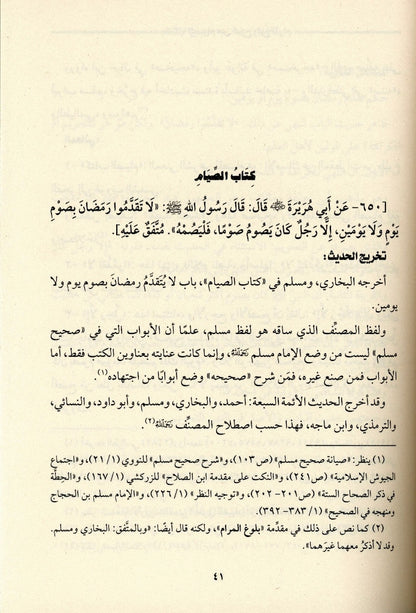 كِتَابُ الصِّيَامِ
[٦٥٠- عَنْ أَبِي هُرَيْرَةَ ﵁ قَالَ: قَالَ رَسُولُ اللهِ ﷺ: «لَا تَقَدَّمُوا رَمَضَانَ بِصَوْمِ
يَوْمٍ وَلَا يَوْمَيْنِ، إِلَّا رَجُلٌ كَانَ يَصُومُ صَوْمًا، فَلْيَصُمْهُ». مُتَّفَقٌ عَلَيْهِ].
تخريج الحديث:
أخرجه البخاري، ومسلم في «كتاب الصيام»، باب لا يُتَقدَّمُ رمضانَ بصوم يوم ولا
يومين.
ولفظ المصنِّف الذي ساقه هو لفظ مسلم، علمًا أن الأبواب التي في «صحيح
مسلم» ليست من وضع الإمام مسلم ﵀، وإنما كانت عنايته بعناوين الكتب فقط، أما
الأبواب فمن صنع غيره، فمَن شرح «صحيحه» وضع أبوابًا من اجتهاده(١).
وقد أخرج الحديث الأئمة السبعة: أحمد، والبخاري، ومسلم، وأبو داود، والنسائي،
والترمذي، وابن ماجه، فهذا حسب اصطلاح المصنِّف ﵀(٢).
(١) ينظر: «صيانة صحيح مسلم» (ص١٠٣)، و«شرح صحيح مسلم» للنووي (١/ ٢١)، و«اجتماع
الجيوش الإسلامية» (ص٢٤١)، و«النكت على مقدمة ابن الصلاح» للزركشي (١/ ١٦٧)، و«الحِطَّة
في ذكر الصحاح الستة» (ص٢٠١- ٢٠٢)، و«توجيه النظر» (١/ ٢٢٦)، و«الإمام مسلم بن الحجاج
ومنهجه في الصحيح» (١/ ٣٨٣- ٣٩٢).
(٢) كما نص على ذلك في مقدِّمة «بلوغ المرام»، ولكنه قال أيضًا: «وبالمتَّفق: البخاري ومسلم.
وقد لا أذكرُ معهما غيرَهما».
٤١